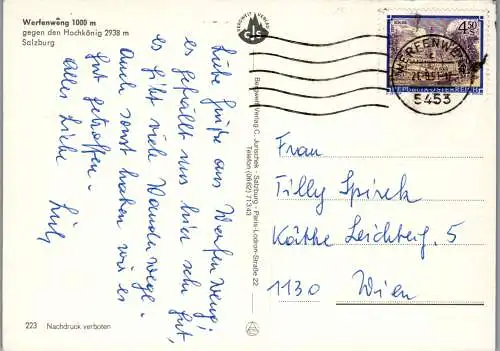 Werfenweng 1000 m
gegen den Hochkönig 2938 m
Salzburg
Liebe Grüße aus Werfenweng!
es gefällt uns hier sehr gut,
es gibt viele Wanderwege.
Auch sonst haben wir es
gut getroffen.
Alles Liebe
BERGWELT VERLAG
CJS
Bergwelt Verlag C. Jurischek - Salzburg - Paris-Lodron-Straße 22
Telefon (06222) 71343
4.50
REPUBLIK ÖSTERREICH
WERFENWENG
5453
Frau
Tilly Spirek
Käthe Leichberg. 5
1130 Wien
223 Nachdruck verboten